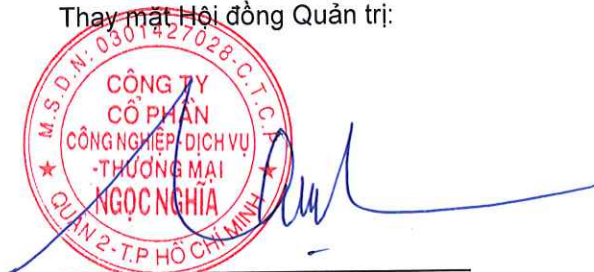 Thay mặt Hội đồng Quản trị:
M.S.D.N: 0301427028-C.T.C.P
CÔNG TY
CỔ PHẦN
CÔNG NGHIỆP-DỊCH VỤ
-THƯƠNG MẠI
NGỌC NGHĨA
QUẬN 2-T.P HỒ CHÍ MINH